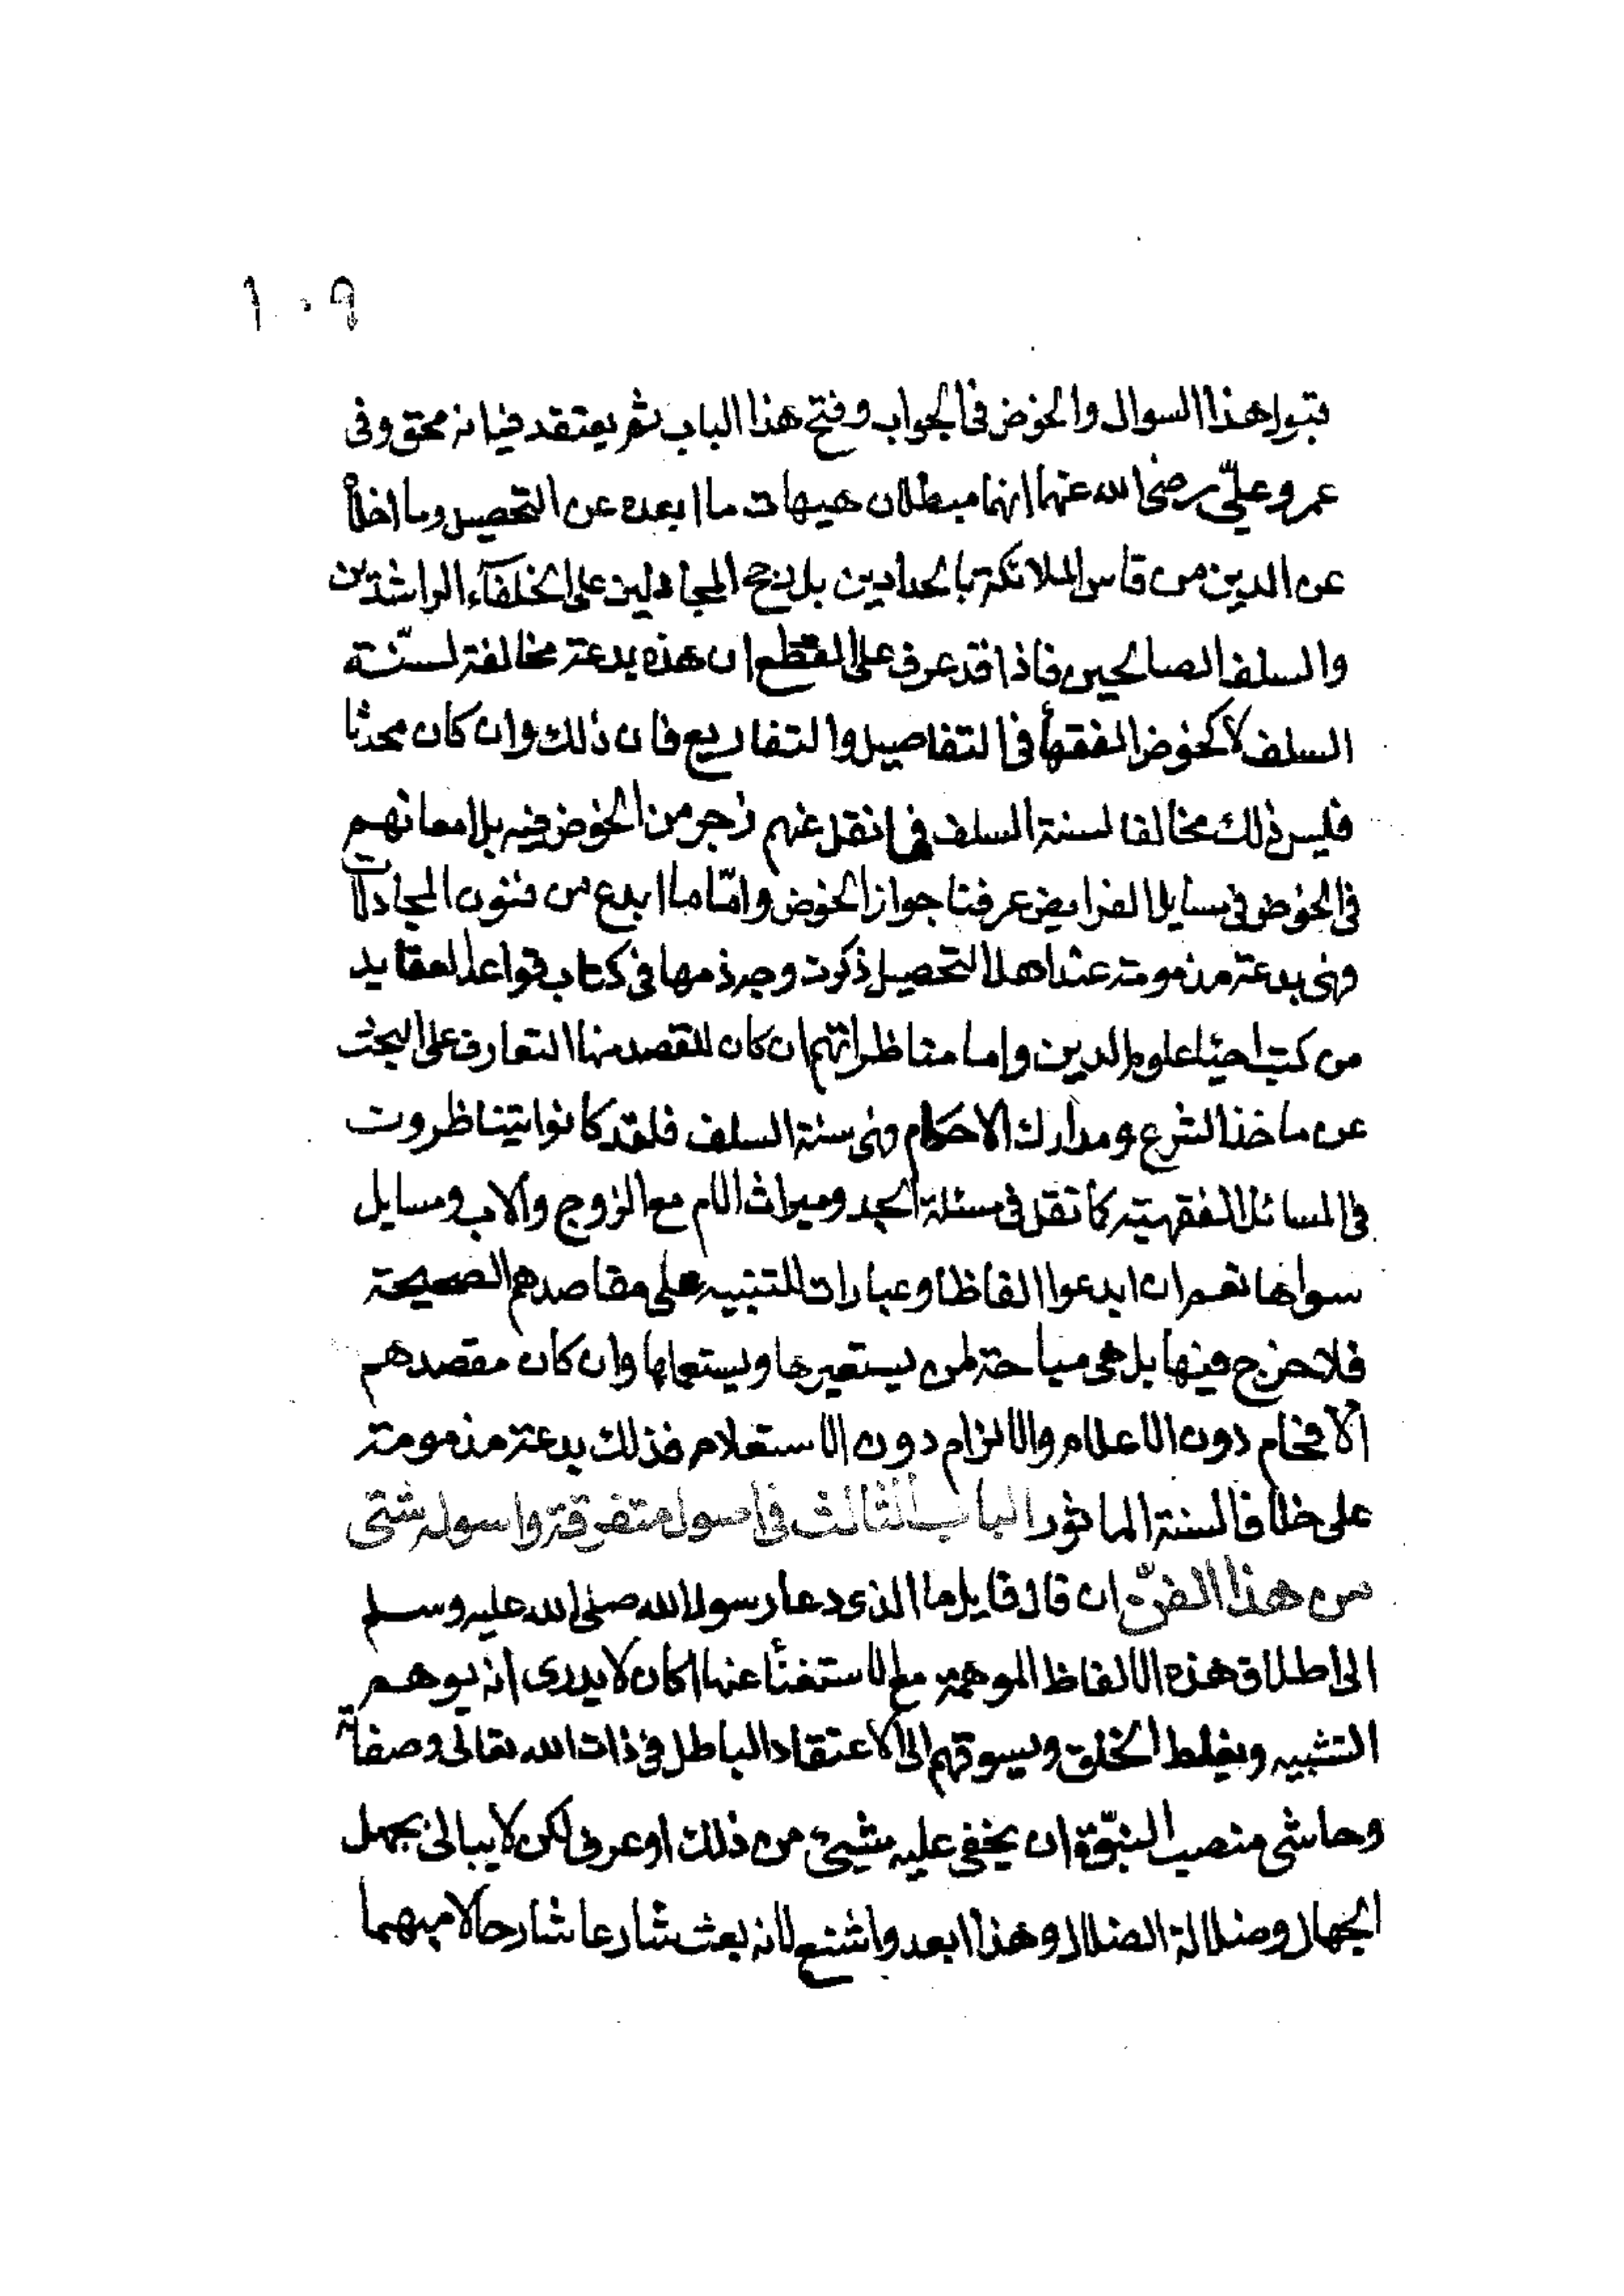 ١٠٩
بتبول هذا السوال والخوض في الجواب وفتح هذا الباب ثم يعتقد فيه انه محق وفى
عمر وعلىّ رضى الله عنهما انهما مبطلان هيهات ما ابعده عن التحصيل وما اخلاّ
عن الدين من قاس الملائكة بالحدادين بل رجح المجادلين على الخلفآء الراشدين
والسلف الصالحين فاذا قد عرف على القطع ان هذه بدعة مخالفة لسنّة
السلف لا كخوض الفقهأ فى التفاصيل والتفاريع فان ذلك وان كان محدثا
فليس ذلك مخالفا لسنة السلف فما نقل عنهم زجر من الخوض فيه بل امعانهم
فى الخوض فى مسايل الفرايض عرفنا جواز الخوض وامّا ما ابدع من فنون المجادلات
فهى بدعة مذمومة عند اهل التحصيل ذكرت وجه ذمها فى كتاب قواعد العقايد
من كتب احيا علوم الدين واما مناظراتهم ان كان المقصد منها التعارف على البحث
عن ماخذ الشرع ومدارك الاحكام فهى سنة السلف فلقد كانوا يتناظروت
فى المسائل الفقهية كما نقل فى مسئلة الجد وميراث الام مع الزوج والاب ومسايل
سواها نعم ان ابدعوا الفاظا وعبارات للتنبيه على مقاصدهم الصحيحة
فلا حرج فيها بل هى مباحة لمن يستعيرها ويستعملها وان كان مقصدهم
الافحام دون الاعلام والالزام دون الاستعلام فذلك بدعة مذمومة
على خلاف السنة الماثور الباب الثالث فى اصول متفرقة واسوله شتى
من هذا الفنّ ان قال قايل ما الذى دعا رسول الله صلى الله عليه وسلم
الى اطلاق هذه الالفاظ الموهمة مع الاستغنأ عنها اكان لا يدرى انه يوهم
التشبيه ويغلط الخلق ويسوقهم الى الاعتقاد الباطل فى ذات الله تعالى وصفاته
وحاشى منصب النبّوة ان يخفى عليه شيئ من ذلك او عرف لكن لا يبالى بجهل
الجهال وضلالة الضلال وهذا ابعد واشنع لانه بعث شارعا شارحا لا مبهما